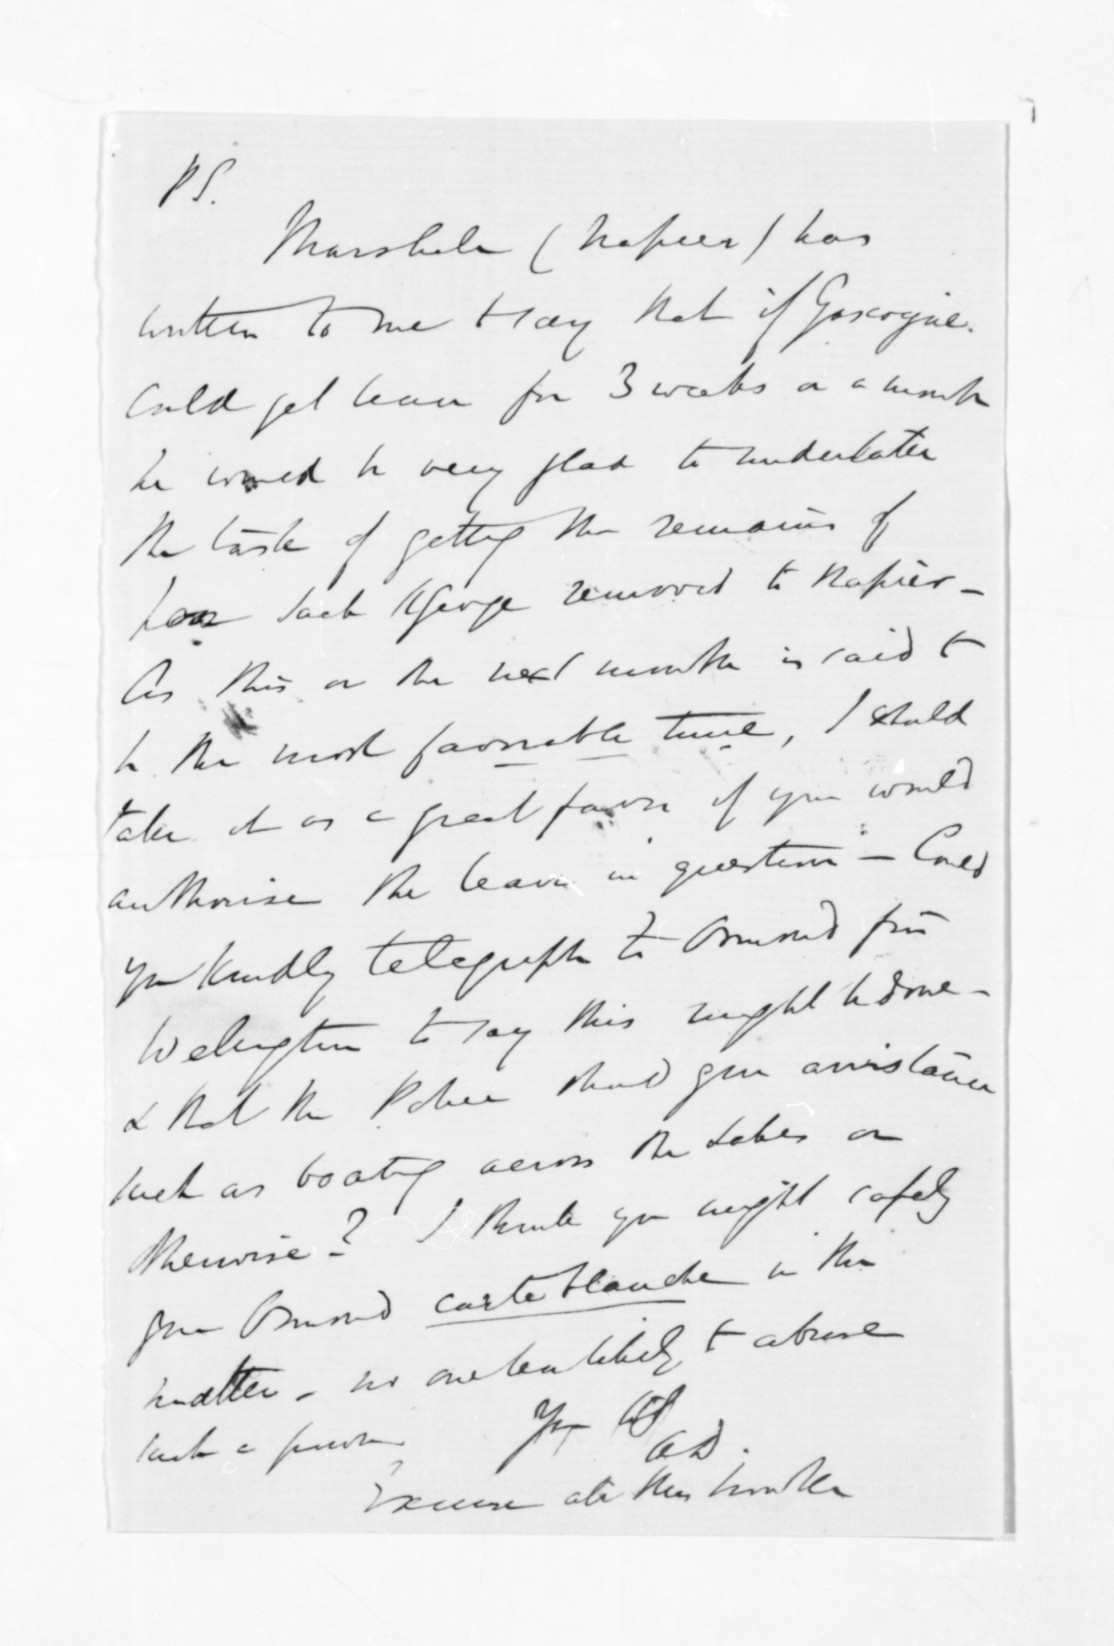 PS.
Marshall (Napier) has
written to me to say that if Gascoigne.
Could get leave for 3 weeks or a month
he would be very glad to undertake
the task of getting the remains of
poor Jack St George removed to Napier -
As this or the next month is said to
be the most favourable time, I should
take it as a great favor if you would
authorise the leave in question - Could
you kindly telegraph to Ormond from
Wellington to say this might be done -
& that the Police should give assistance
such as boating across the Lakes or
otherwise? I think you might safely
give Ormond carte blanche in the
matter - no one less likely to abuse
such a power
Yrs
Excuse all this trouble